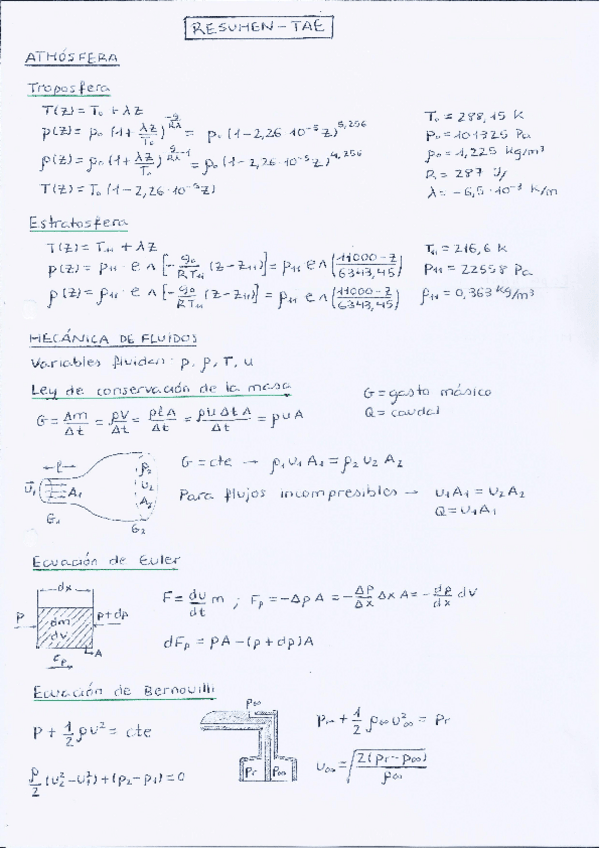 RESUMEN - TAE
ATMÓSFERA
Troposfera
T(z) = T₀ + λz
p(z) = p₀ (1 + λz/T₀)^(-g/Rλ) = p₀ (1 - 2,26·10⁻⁵z)^5,256
ρ(z) = ρ₀ (1 + λz/T₀)^(-g/Rλ - 1) = ρ₀ (1 - 2,26·10⁻⁵z)^4,256
T(z) = T₀ (1 - 2,26·10⁻⁵z)
T₀ = 288,15 K
P₀ = 101325 Pa
ρ₀ = 1,225 kg/m³
R = 287 J/
λ = -6,5·10⁻³ K/m
Estratosfera
T(z) = T₁₁ + λz
p(z) = p₁₁ · e ^ [-g₀/RT₁₁ (z - z₁₁)] = p₁₁ e ^ (11000-z/6343,45)
ρ(z) = ρ₁₁ · e ^ [-g₀/RT₁₁ (z - z₁₁)] = ρ₁₁ e ^ (11000-z/6343,45)
T₁₁ = 216,6 K
P₁₁ = 22558 Pa
ρ₁₁ = 0,363 kg/m³
MECÁNICA DE FLUIDOS
Variables fluidas: p, ρ, T, u
Ley de conservación de la masa
G = Δm/Δt = ρV/Δt = ρℓA/Δt = ρuΔtA/Δt = ρuA
G = gasto másico
Q = caudal
ℓ
u₁ A₁
G₁
ρ₂
u₂
A₂
G₂
G = cte → ρ₁u₁A₁ = ρ₂u₂A₂
Para flujos incompresibles → u₁A₁ = u₂A₂
Q = u₁A₁
Ecuación de Euler
dx
P
dm
dv
p+dp
A
F = du/dt m ; Fₚ = -Δp A = -Δp/Δx Δx A = -dp/dx dV
dFₚ = PA - (p + dp)A
Ecuación de Bernouilli
P + 1/2 ρu² = cte
ρ/2 (u₂² - u₁²) + (p₂ - p₁) = 0
p∞
Pr
P∞
Pr + 1/2 ρ∞ u∞² = Pr
u∞ = √(2(pr - p∞)/ρ∞)